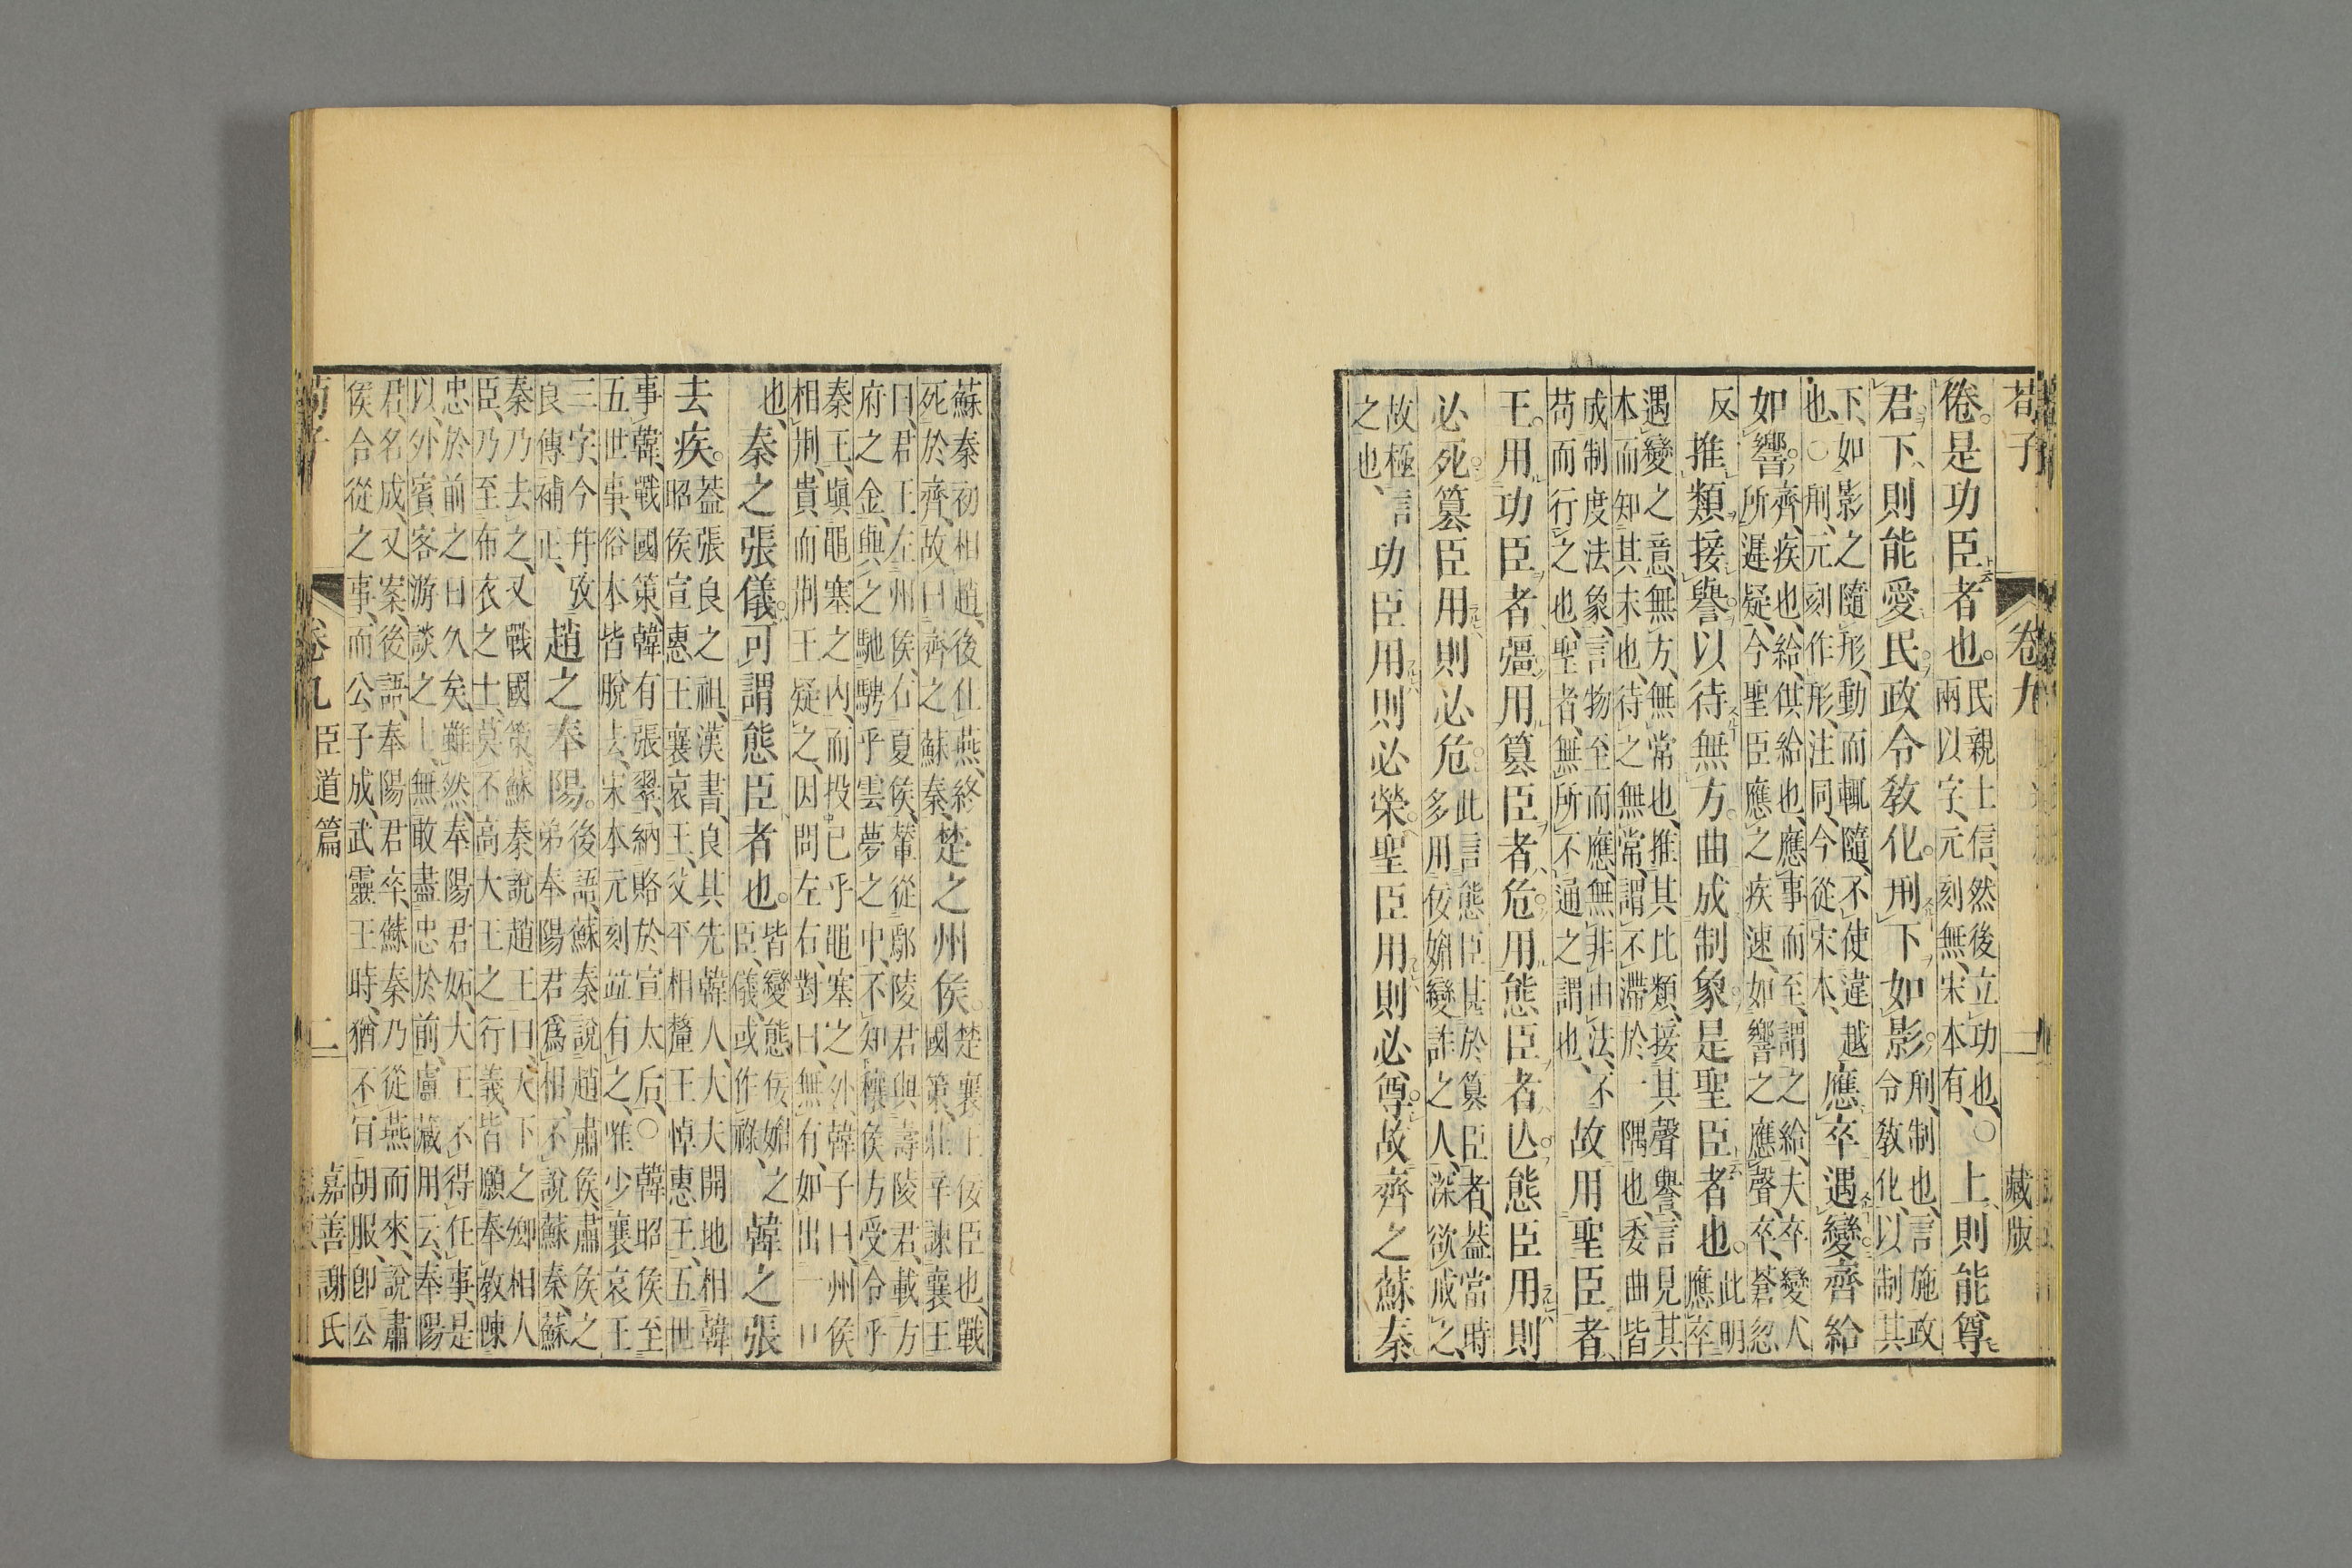 荀子 卷九 二 藏版
倦。是功臣者也。民親士信、然後立功也、〇兩以字、元刻無、宋本有、上則能尊
君、下則能愛民。政令敎化。刑下如影。刑、制也、言施政令敎化、以制其
下、如影之隨形、動而輒隨、不使違越也、〇刑、元刻作形、注同、今從宋本、應卒遇變。齊給
如響。齊、疾也、給、供給也、應事而至、謂之給、夫卒變人所遲疑、今聖臣應之疾速、如響之應聲、卒、蒼忽
反、推類接譽。以待無方。曲成制象。是聖臣者也。此明應卒
遇變之意、無方、無常也、推其比類、接其聲譽、言見其本而知其末也、待之無常、謂不滯於一隅也、委曲皆
成制度法象、言物至而應、無非由法、不苟而行之也、聖者、無所不通之謂也、故用聖臣者、
王。用功臣者、彊。用篡臣者、危。用態臣者、亾。態臣用則
必死。篡臣用則必危。此言態臣甚於篡臣者、葢當時多用佞媚變詐之人、深欲戒之、
故極言之也、功臣用則必榮。聖臣用則必尊。故齊之蘇秦
蘇秦初相趙、後仕燕、終死於齊、故曰齊之蘇秦、楚之州侯。楚襄王佞臣也、戰國策、莊辛諫襄王
曰、君王左州侯、右夏侯、輦從鄢陵君與壽陵君、載方府之金、與之馳騁乎雲夢之中、不知穰侯方受令乎
秦王、塡黽塞之內、而投已乎黽塞之外、韓子曰、州侯相荆、貴、而荆王疑之、因問左右、對曰、無有、如出一口
也、秦之張儀。可謂態臣者也。皆變態佞媚之臣、儀、或作祿、韓之張
去疾。葢張良之祖、漢書、良其先韓人、大夫開地相韓昭侯宣惠王襄哀王、父平相釐王悼惠王、五世
事韓、戰國策、韓有張翠、納賂於宣太后、〇韓昭侯至五世事、俗本皆脫去、宋本元刻竝有之、惟少襄哀王
三字、今幷攷良傳補正、趙之奉陽。後語、蘇秦說趙肅侯、肅侯之弟奉陽君爲相、不說蘇秦、蘇
秦乃去之、又戰國策蘇秦說趙王曰、天下之卿相人臣、乃至布衣之士、莫不高大王之行義、皆願奉敎陳
忠於前之日久矣、雖然、奉陽君妬、大王不得任事、是以外賓客游談之士、無敢盡忠於前、盧藏用云、奉陽
君、名成、又案、後語、奉陽君卒、蘇秦乃從燕而來、說肅侯合從之事、而公子成、武靈王時、猶不肯胡服、卽公
荀子 卷九 臣道篇 二 嘉善謝氏